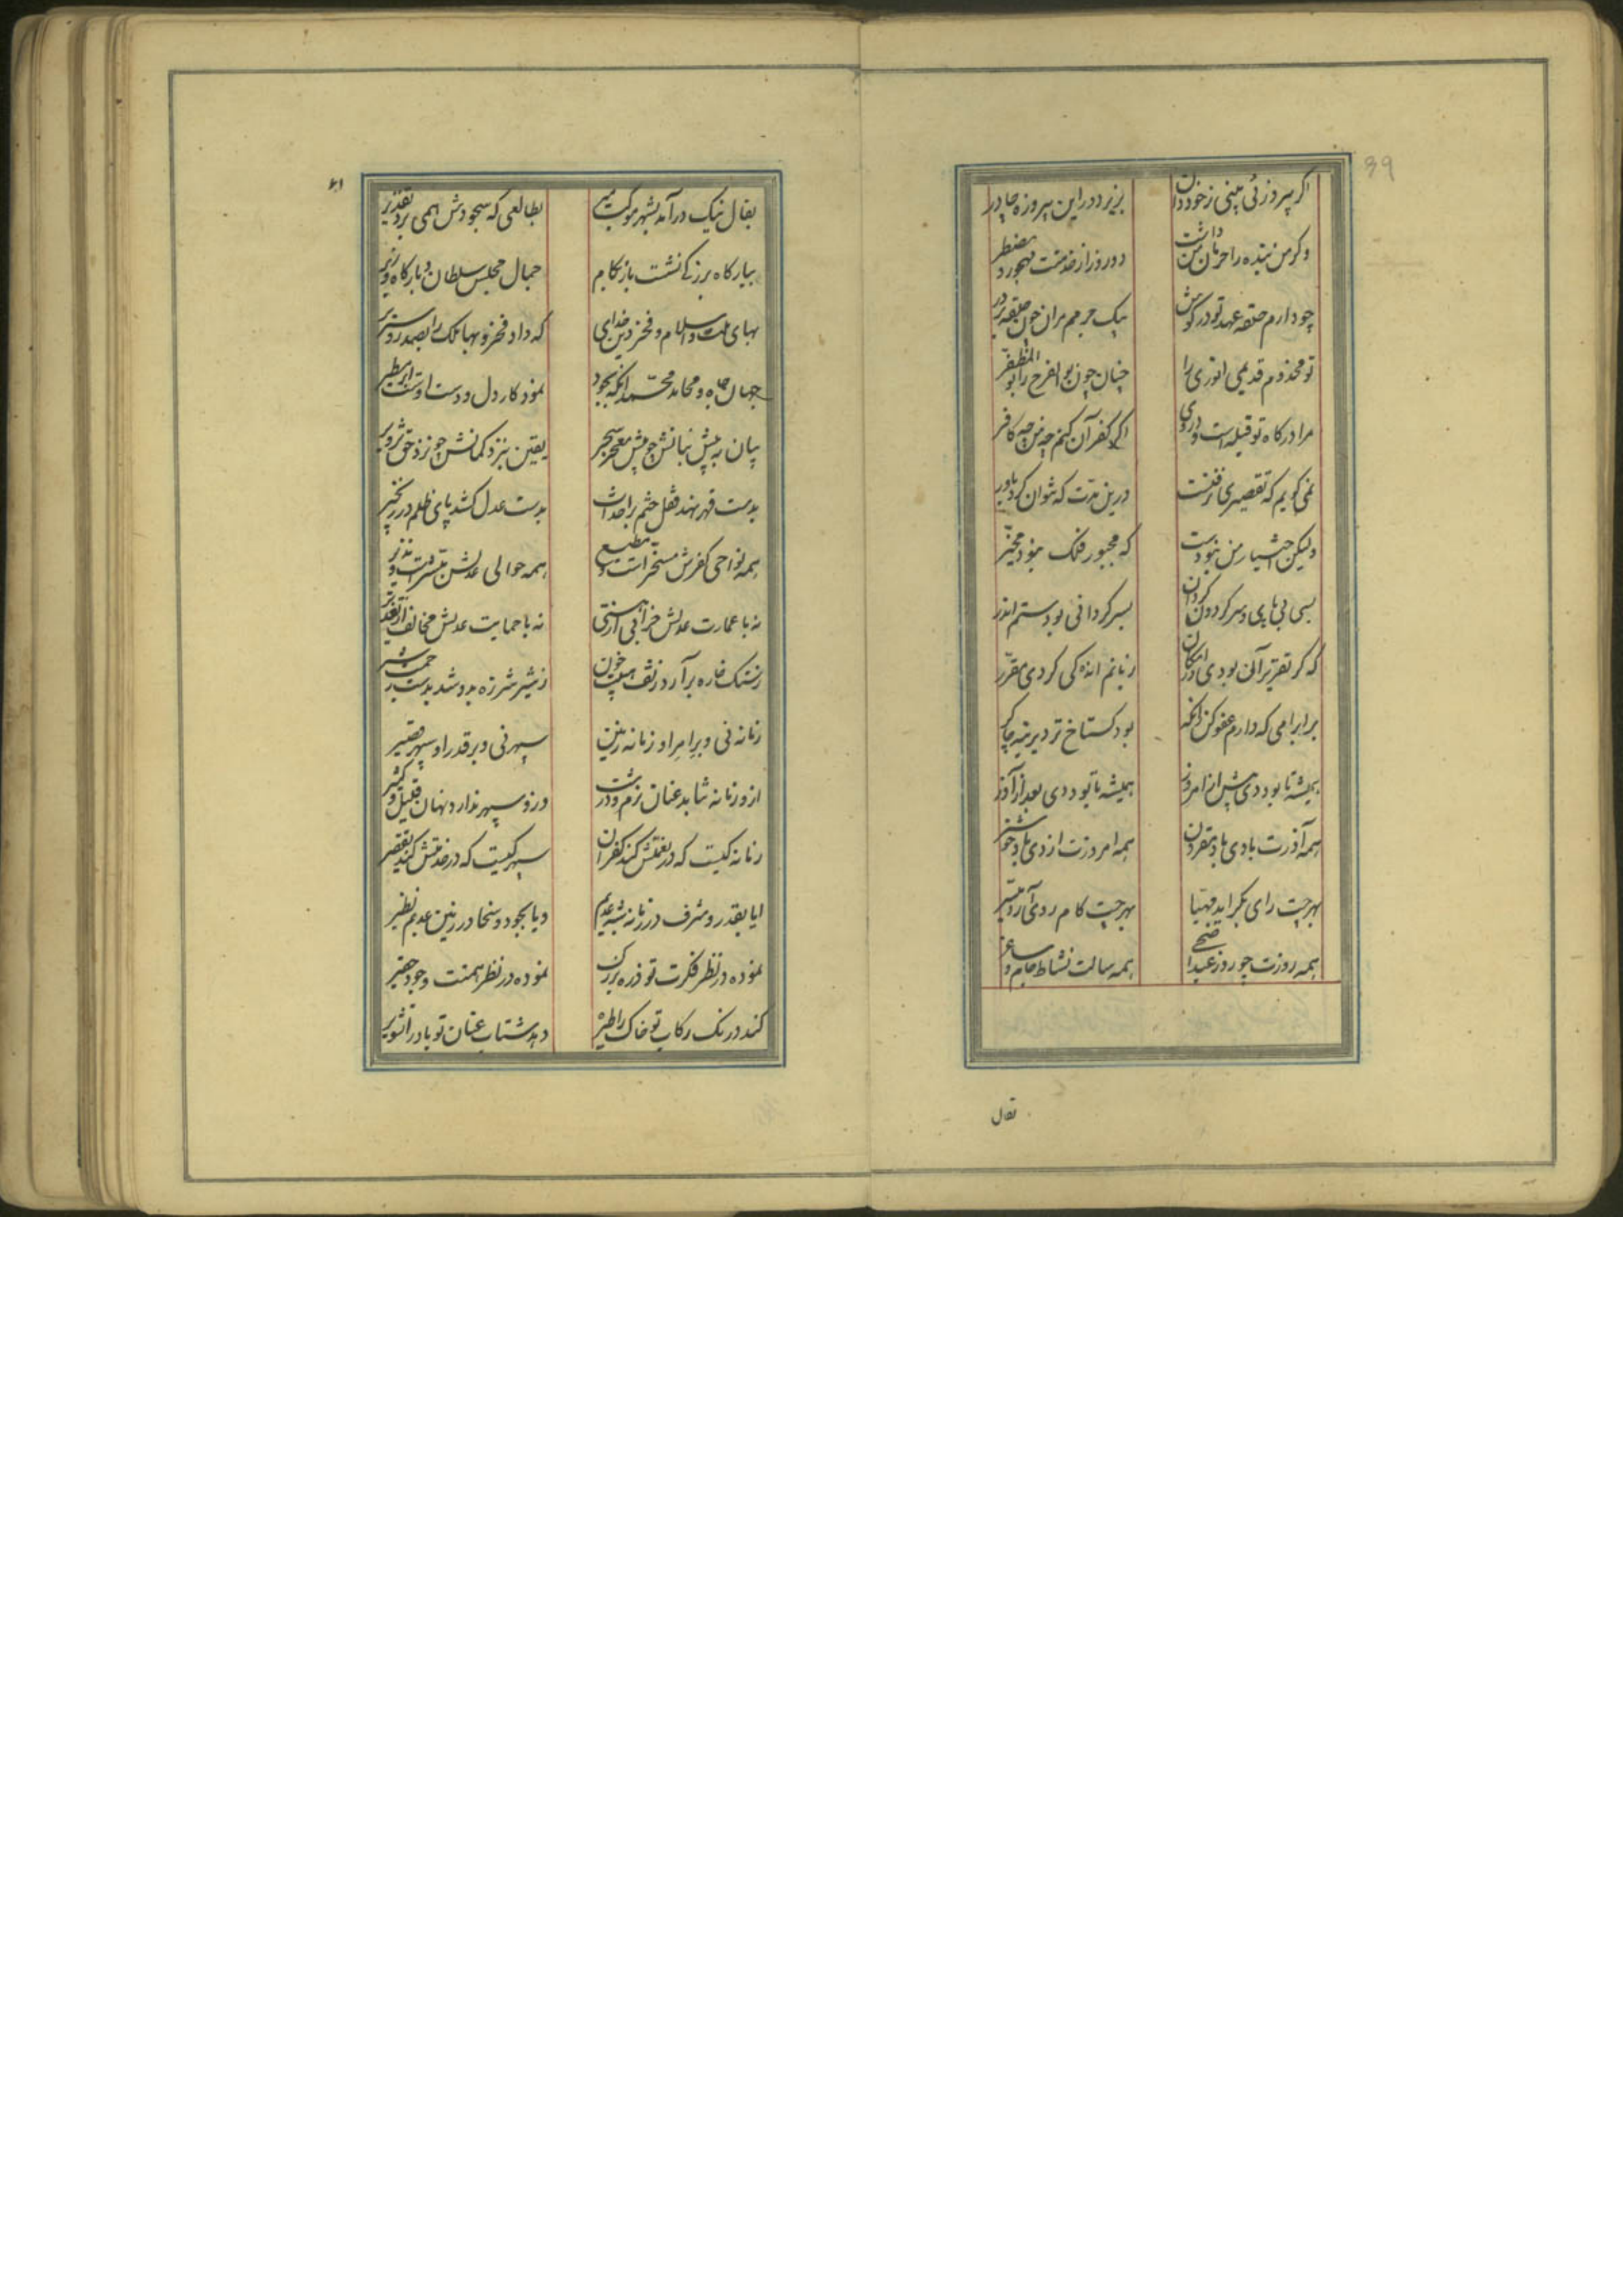 39
اگر پیروزئی بینی ز خود دان
بزیر دور این پیروزه چادر
وگر من بنده را حرمان من داشت
دو روز از خدمتت مهجور و مضطر
چو دارم حلقه عهد تو در گوش
بیک جرمم مران چون حلقه بر در
تو مخدوم قدیمی انوری را
چنان چون بوالفرج را بوالمظفر
مرا درگاه تو قبله است و در وی
اگر کفران کنم چه من چه کافر
نمی گویم که تقصیری نرفتست
درین مدت که نتوان کرد باور
ولیکن اختیار من نبودست
که مجبور فلک نبود مخیر
بسی بی پای و سر گردون گردان
بسر گردانی بودستم اندر
که گر تقریر آن بودی در امکان
زبانم اندکی کردی مقرر
بر ابرامی که دارم عفو کن زانکه
بود گستاخ تر دیرینه چاکر
همیشه تا بود دی پیش از امروز
همیشه تا بود دی بعد از آذر
همه آذرت با دی باد مقرون
همه امروزت از دی باد خوشتر
بهرچت رای بگراید مهیا
بهرچت کام روی آرد میسر
همه روزت چو روز عید اضحی
همه سالت نشاط جام و ساغر
بفال
بفال نیک درآمد بشهر موکب میر
بطالعی که سجودش همی برد تقدیر
ببارگاه بزرگی نشست باز بکام
جمال مجلس سلطان و بارگاه وزیر
بهای ملت و اسلام و فخر دین خدای
که داد فخر و بها ملک را بصدر و سریر
جهان جاه و محامد محمد آنکه بجود
نمود کار دل و دست اوست ابر مطیر
بیان به پیش بنانش چو پیش معجز سحر
یقین بنزد گمانش چو نزد حق تزویر
بدست قهر نهد قفل ختم بر احداث
بدست عدل کشد پای ظلم در زنجیر
همه نواحی کفرش مسخرات و مطیع
همه حوالی عدلش مبشرات و نذیر
نه با عمارت عدلش خرابی از مستی
نه با حمایت عدلش مخالف از تقدیر
ز سنگ خاره برآرد ز تف هیبت خون
ز شیر شرزه بدوشد بدست رحمت شیر
زمانه نی و بر امر او زمانه زمین
سپهر نی و بر قدر او سپهر قصیر
ازو زمانه نتابد عنان نرم و درشت
وزو سپهر ندارد نهان قلیل و کثیر
زمانه کیست که در نعمتش کند کفران
سپهر کیست که در خدمتش کند تقصیر
ایا بقدر و شرف در زمانه شبه عدیم
ویا بجود و سخا در زمین عدیم نظیر
نموده در نظر فکرت تو ذره بزرگ
نموده در نظر همتت وجود حقیر
کند درنگ رکاب تو خاک را طیره
دهد شتاب عنان تو باد را تشویر